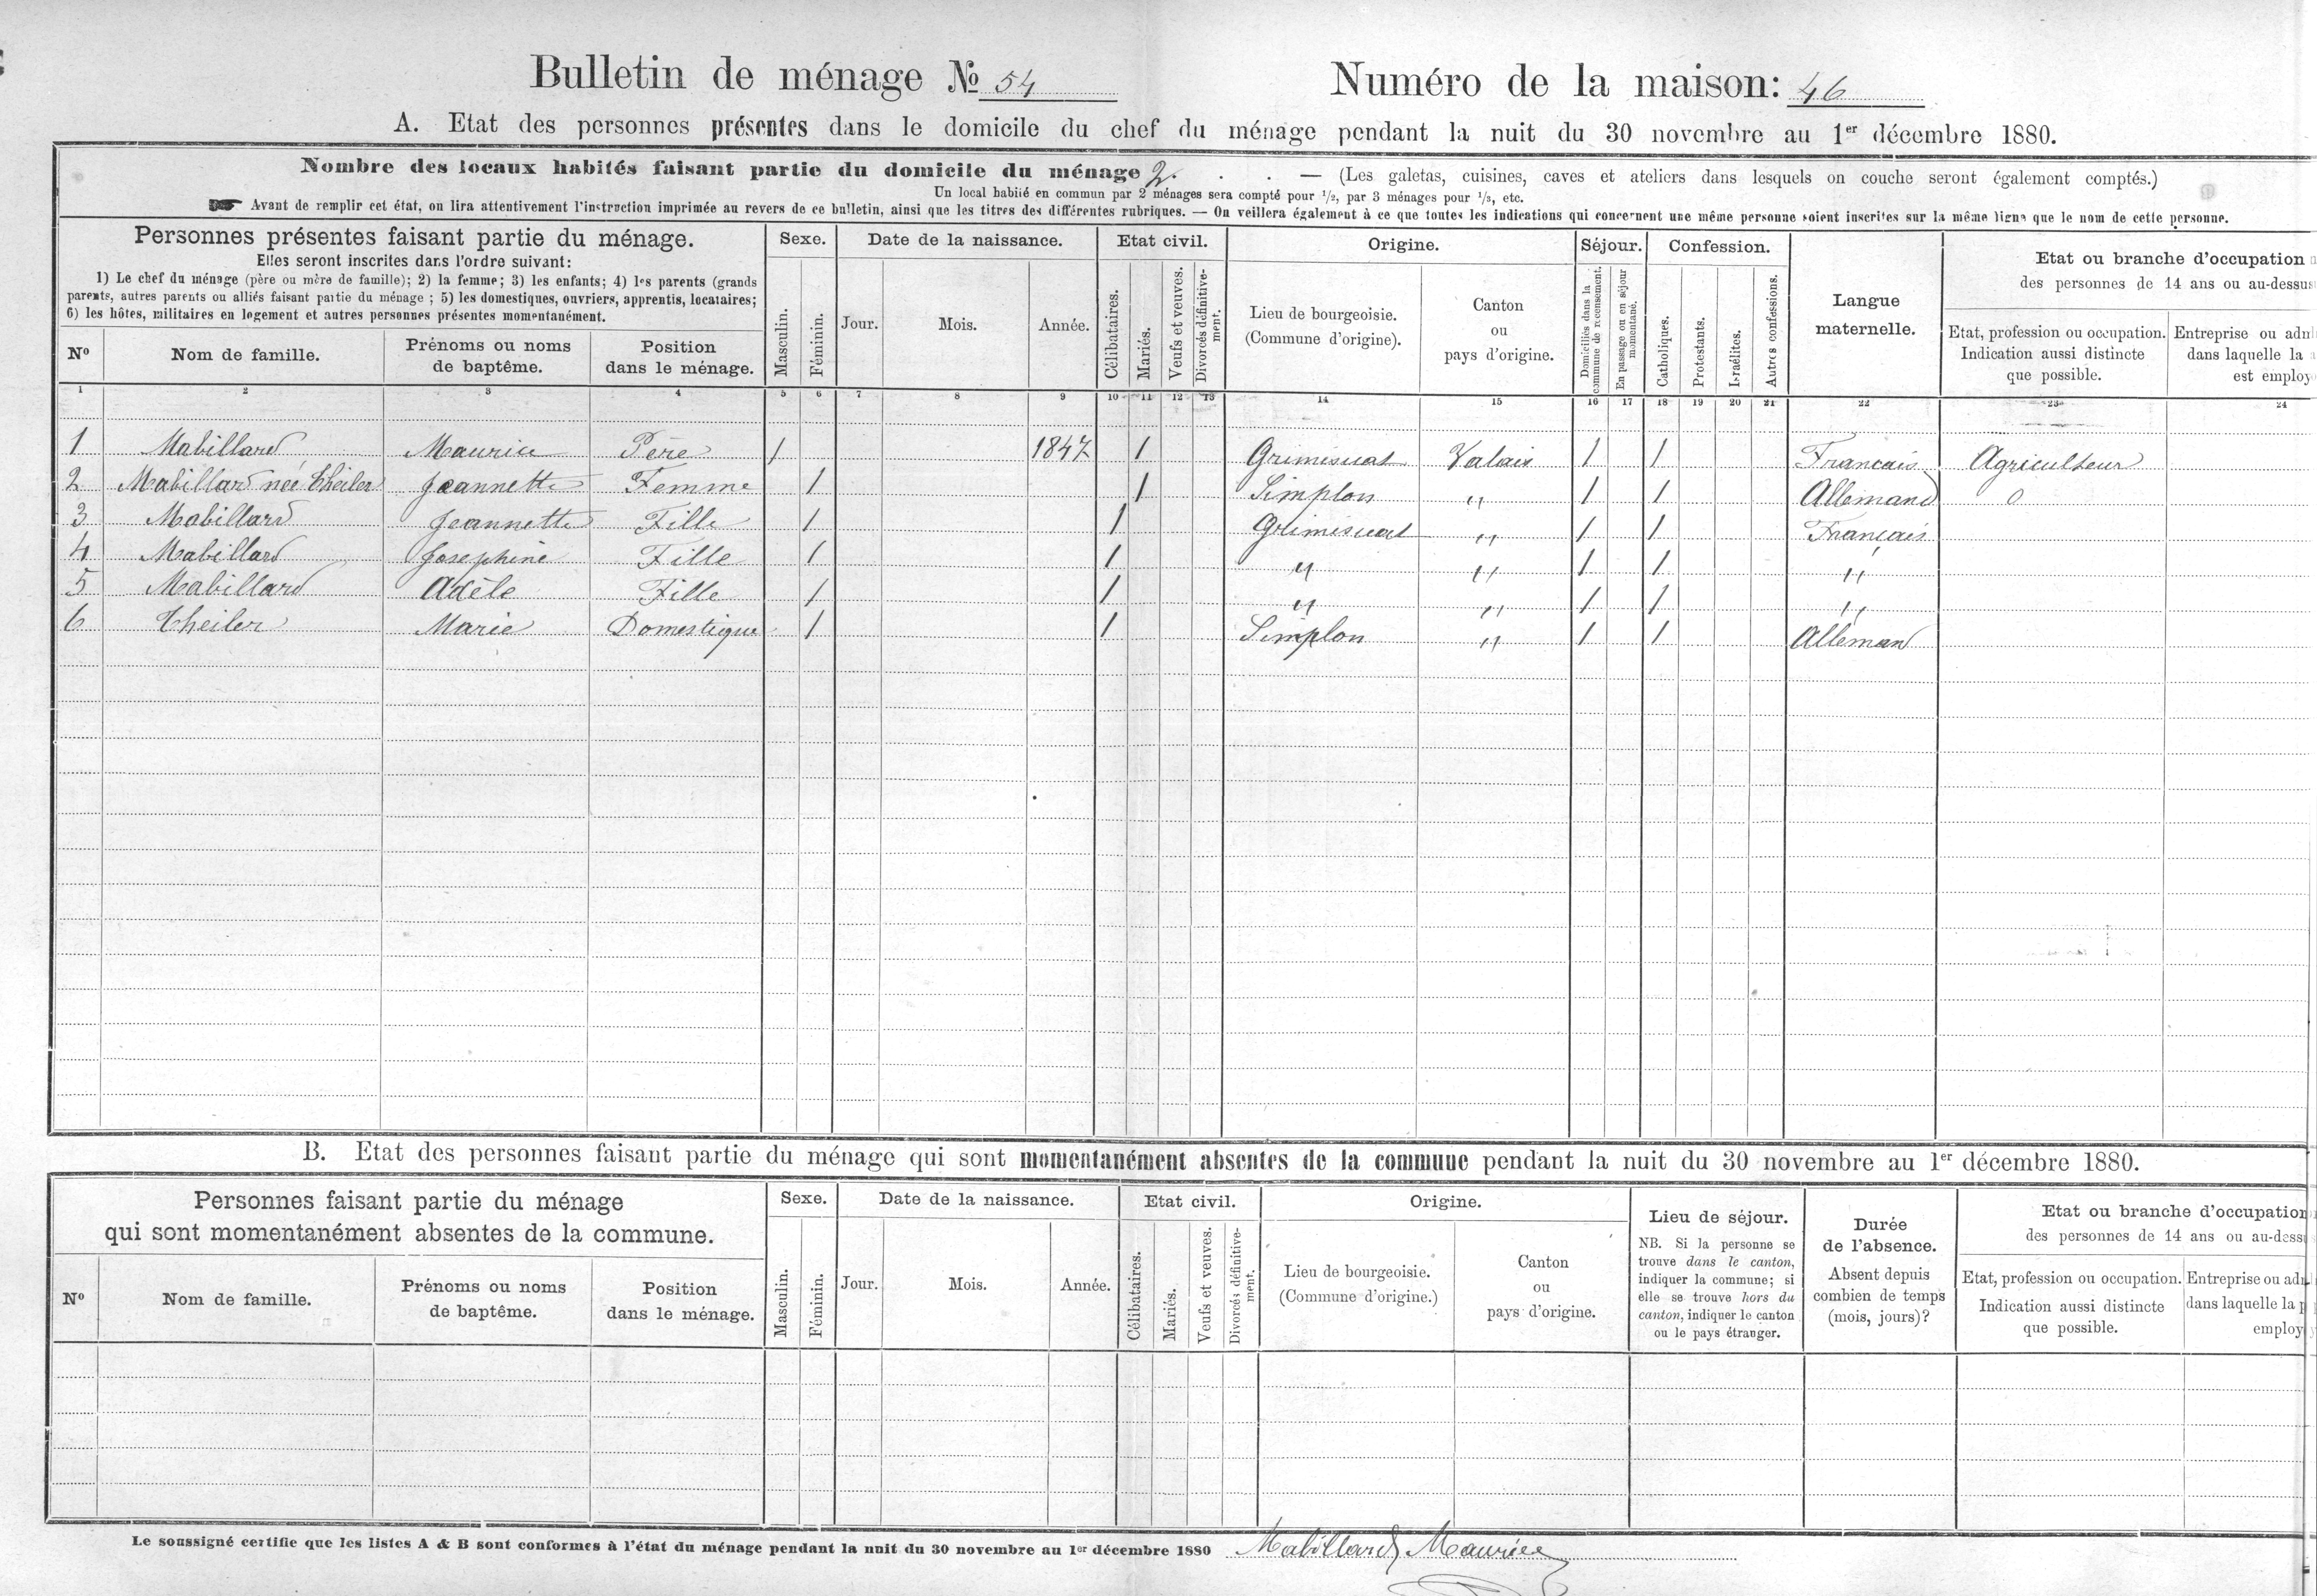 Bulletin de ménage № 54
Numéro de la maison: 46
A. Etat des personnes présentes dans le domicile du chef du ménage pendant la nuit du 30 novembre au 1er décembre 1880.
Nombre des locaux habités faisant partie du domicile du ménage 2. . . — (Les galetas, cuisines, caves et ateliers dans lesquels on couche seront également comptés.)
Un local habité en commun par 2 ménages sera compté pour 1/2, par 3 ménages pour 1/3, etc.
Avant de remplir cet état, on lira attentivement l'instruction imprimée au revers de ce bulletin, ainsi que les titres des différentes rubriques. — On veillera également à ce que toutes les indications qui concernent une même personne soient inscrites sur la même ligne que le nom de cette personne.
Personnes présentes faisant partie du ménage.
Elles seront inscrites dans l'ordre suivant:
1) Le chef du ménage (père ou mère de famille); 2) la femme; 3) les enfants; 4) les parents (grands
parents, autres parents ou alliés faisant partie du ménage; 5) les domestiques, ouvriers, apprentis, locataires;
6) les hôtes, militaires en logement et autres personnes présentes momentanément.
No
Nom de famille.
Prénoms ou noms
de baptême.
Position
dans le ménage.
Sexe.
Masculin.
Féminin.
Date de la naissance.
Jour.
Mois.
Année.
Etat civil.
Célibataires.
Mariés.
Veufs et veuves.
Divorcés définitive-
ment.
Origine.
Lieu de bourgeoisie.
(Commune d'origine).
Canton
ou
pays d'origine.
Séjour.
Domiciliés dans la
commune de recensement.
En passage ou en séjour
momentané.
Confession.
Catholiques.
Protestants.
Israélites.
Autres confessions.
Langue
maternelle.
Etat ou branche d'occupation
des personnes de 14 ans ou au-dessus
Etat, profession ou occupation.
Indication aussi distincte
que possible.
Entreprise ou adm
dans laquelle la
est employ
1 2 3 4 5 6 7 8 9 10 11 12 13 14 15 16 17 18 19 20 21 22 23 24
1 Mabillard Maurice Père 1 1847 1 Grimisuat Valais 1 1 Français Agriculteur
2 Mabillard née Theiler Jeannette Femme 1 1 Simplon " 1 1 Allemand 0
3 Mabillard Jeannette Fille 1 1 Grimisuat " 1 1 Français
4 Mabillard Josephine Fille 1 1 " " 1 1 "
5 Mabillard Adèle Fille 1 1 " " 1 1 "
6 Theiler Marie Domestique 1 1 Simplon " 1 1 Allemand
B. Etat des personnes faisant partie du ménage qui sont momentanément absentes de la commune pendant la nuit du 30 novembre au 1er décembre 1880.
Personnes faisant partie du ménage
qui sont momentanément absentes de la commune.
No
Nom de famille.
Prénoms ou noms
de baptême.
Position
dans le ménage.
Sexe.
Masculin.
Féminin.
Date de la naissance.
Jour.
Mois.
Année.
Etat civil.
Célibataires.
Mariés.
Veufs et veuves.
Divorcés définitive-
ment.
Origine.
Lieu de bourgeoisie.
(Commune d'origine.)
Canton
ou
pays d'origine.
Lieu de séjour.
NB. Si la personne se
trouve dans le canton,
indiquer la commune; si
elle se trouve hors du
canton, indiquer le canton
ou le pays étranger.
Durée
de l'absence.
Absent depuis
combien de temps
(mois, jours)?
Etat ou branche d'occupation
des personnes de 14 ans ou au-dess
Etat, profession ou occupation.
Indication aussi distincte
que possible.
Entreprise ou adm
dans laquelle la p
employ
Le soussigné certifie que les listes A & B sont conformes à l'état du ménage pendant la nuit du 30 novembre au 1er décembre 1880 Mabillard Maurice